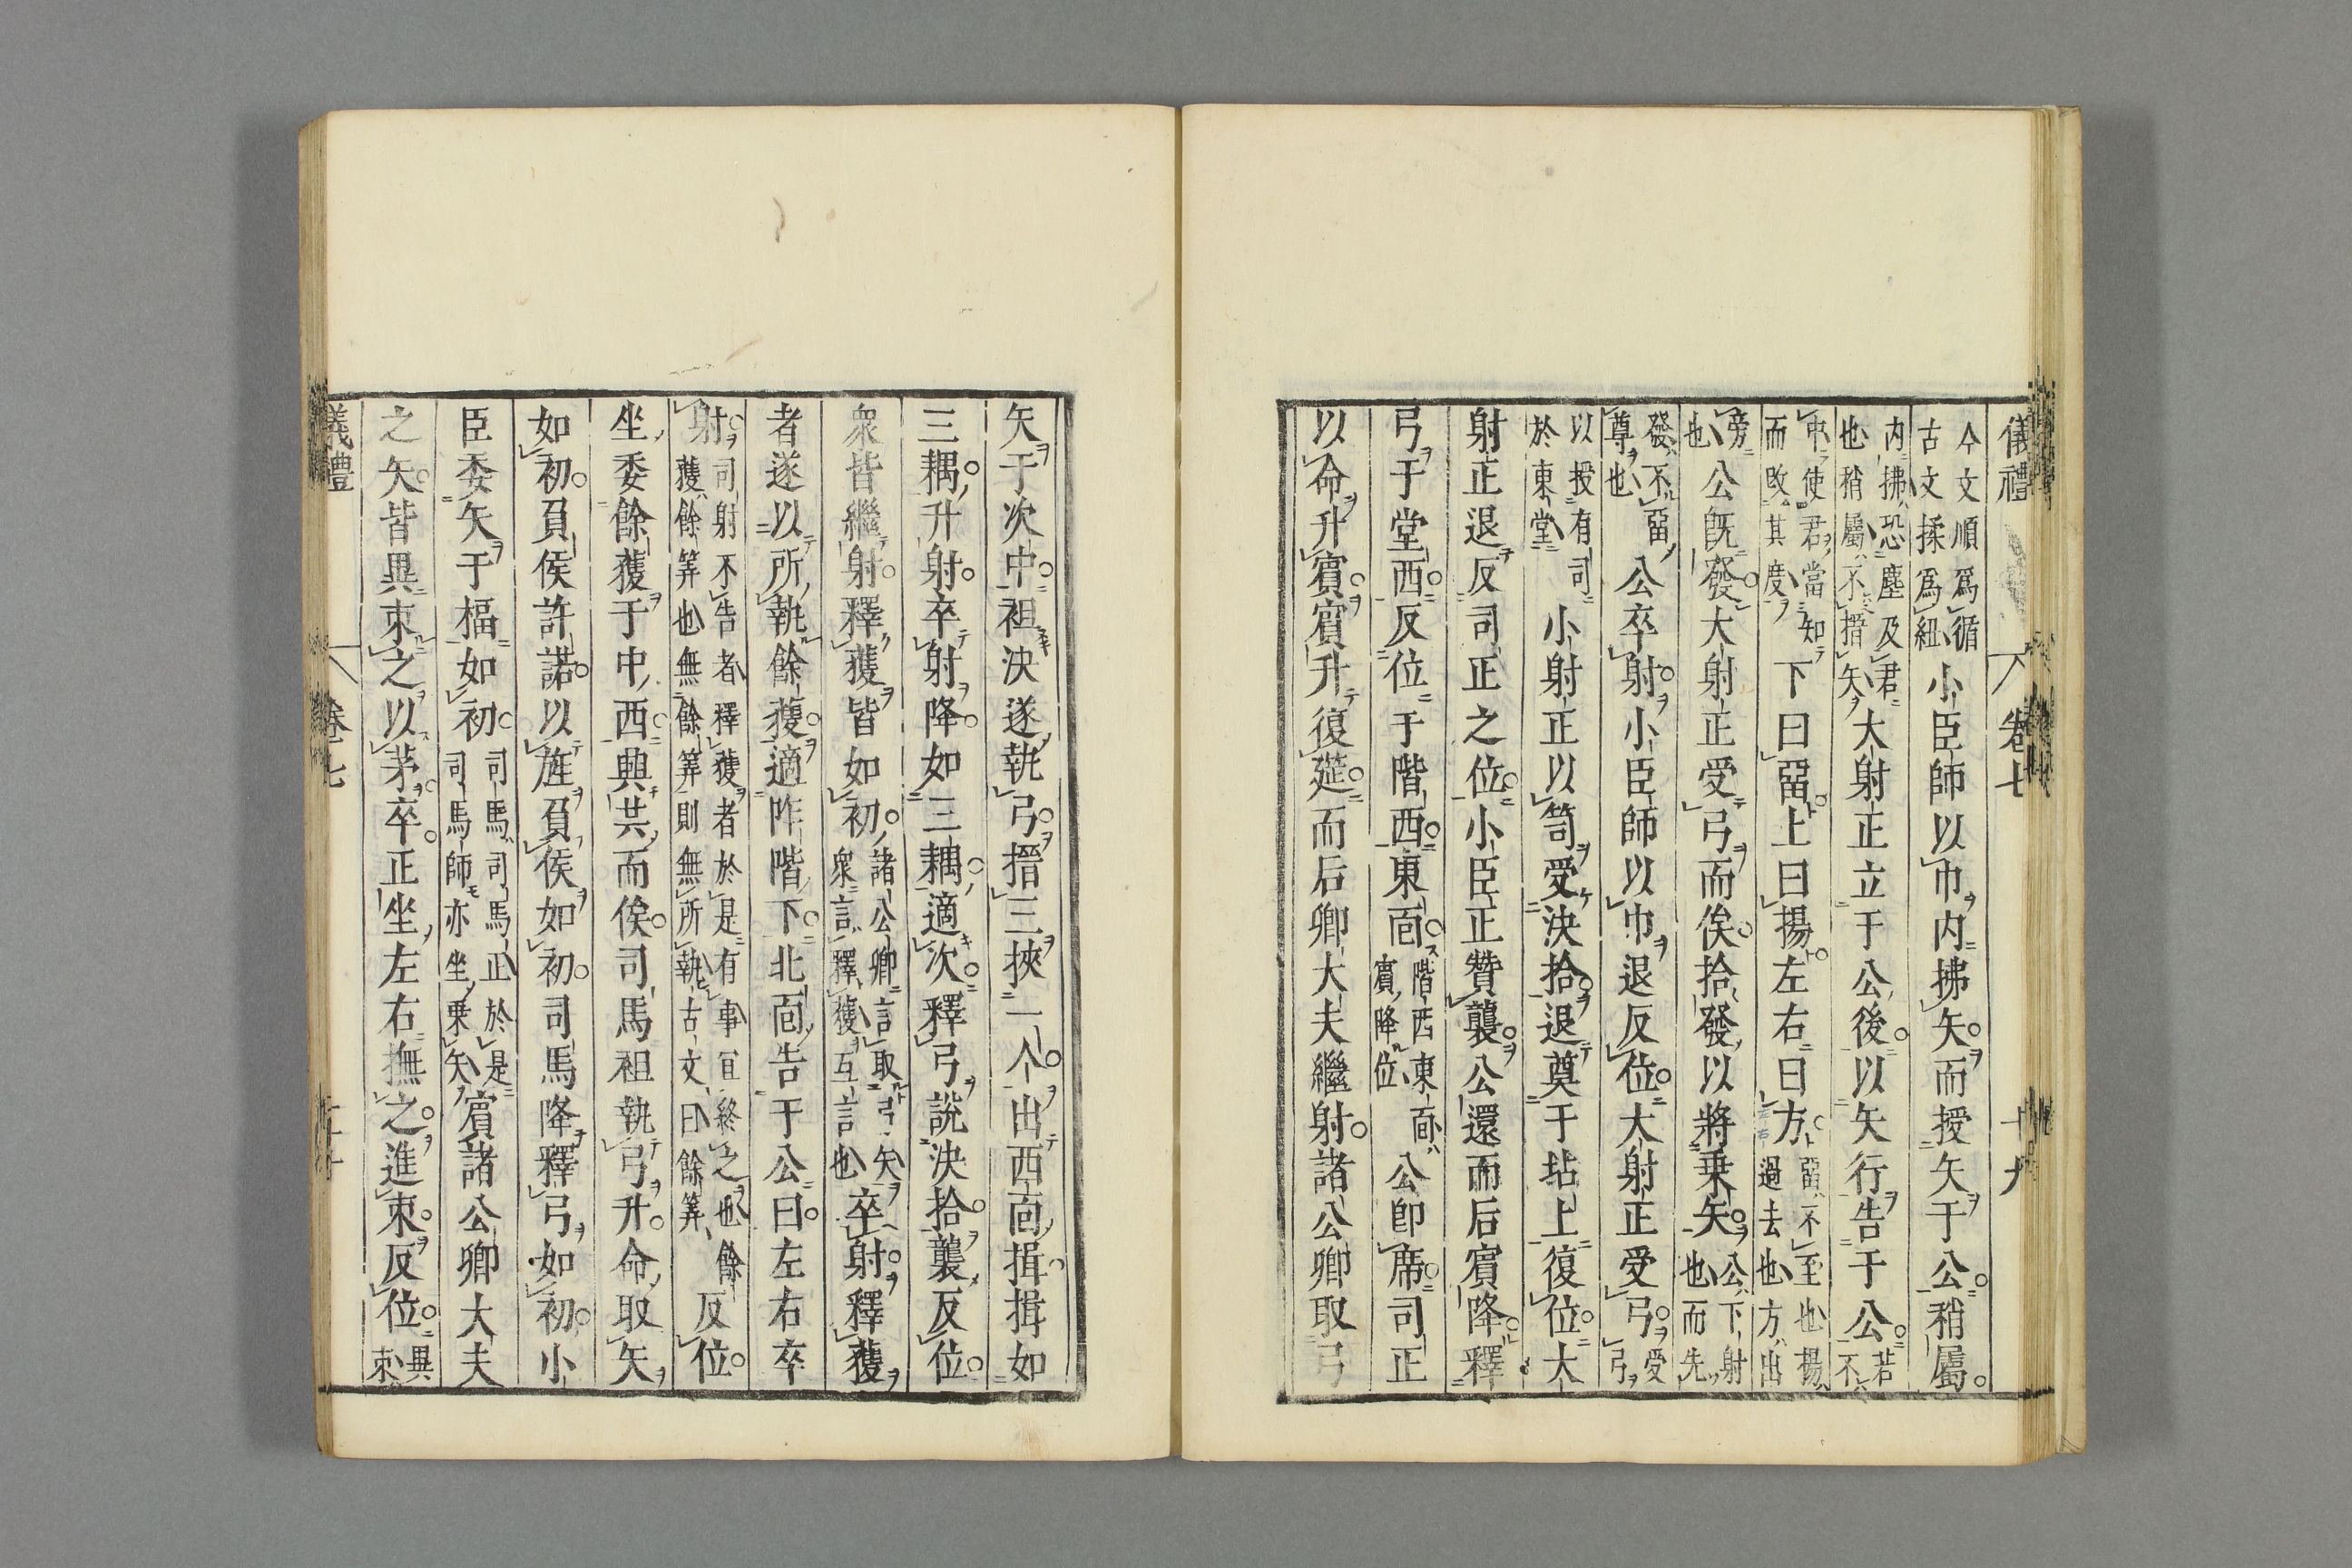 儀禮 卷七 十九
今文順爲循古文揉爲紐 小臣師以巾内拂矢而授矢于公稍屬
内拂恐塵及君也稍屬不搢矢 大射正立于公後以矢行告于公 若不
中使君當知而改其度 下曰畱上曰揚左右曰方 畱不至也揚過去也方出
旁也 公既發大射正受弓而俟拾發以將乗矢 公下射也而先
發不畱尊也 公卒射小臣師以巾退反位大射正受弓 受弓
以授有司於東堂 小射正以笥受決拾退奠于坫上復位大
射正退反司正之位小臣正贊襲公還而后賓降釋
弓于堂西反位于階西東面 階西東面賓降位 公卽席司正
以命升賓賓升復筵而后卿大夫繼射諸公卿取弓
矢于次中袒決遂執弓搢三挾一个出西面揖揖如
三耦升射卒射降如三耦適次釋弓說決拾襲反位
衆皆繼射釋獲皆如初 諸公卿言取弓矢衆言釋獲互言也 卒射釋獲
者遂以所執餘獲適阼階下北面告于公曰左右卒
射 司射不告者釋獲者於是有事宜終之也餘獲餘筭也無餘筭則無所執古文曰餘筭 反位
坐委餘獲于中西興共而俟司馬袒執弓升命取矢
如初負侯許諾以旌負侯如初司馬降釋弓如初小
臣委矢于楅如初 司馬司馬正於是司馬師亦坐乗矢 賓諸公卿大夫
之矢皆異束之以茅卒正坐左右撫之進束反位 異束
儀禮 卷七